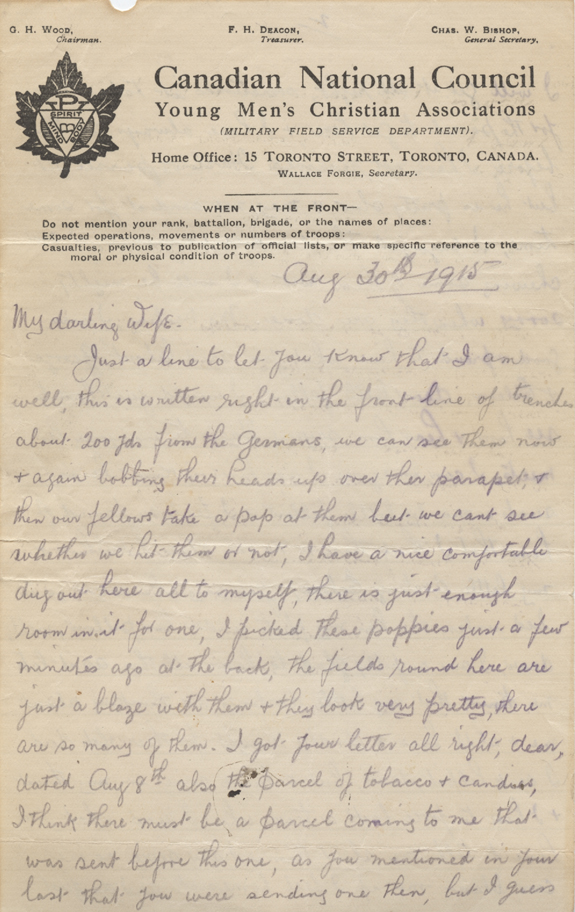 G. H. WOOD, Chairman.
F. H. DEACON, Treasurer.
CHAS. W. BISHOP, General Secretary.
SPIRIT
MIND
BODY
Canadian National Council
Young Men's Christian Associations
(MILITARY FIELD SERVICE DEPARTMENT).
Home Office: 15 TORONTO STREET, TORONTO, CANADA.
WALLACE FORGIE, Secretary.
WHEN AT THE FRONT—
Do not mention your rank, battalion, brigade, or the names of places:
Expected operations, movements or numbers of troops:
Casualties, previous to publication of official lists, or make specific reference to the
moral or physical condition of troops.
Aug 30th 1915
My darling Wife.
Just a line to let you know that I am
well, this is written right in the front line of trenches
about 200 yds from the Germans, we can see them now
+ again bobbing their heads up over ther parapet, +
then our fellows take a pop at them but we cant see
whether we hit them or not, I have a nice comfortable
dug out here all to myself, there is just enough
room in it for one, I picked these poppies just a few
minutes ago at the back, the fields round here are
just a blaze with them + they look very pretty, there
are so many of them. I got your letter all right, dear,
dated Aug 8th also the parcel of tobacco +
I think there must be a parcel coming to me that
was sent before this one, as you mentioned in your
last that you were sending one then, but I guess